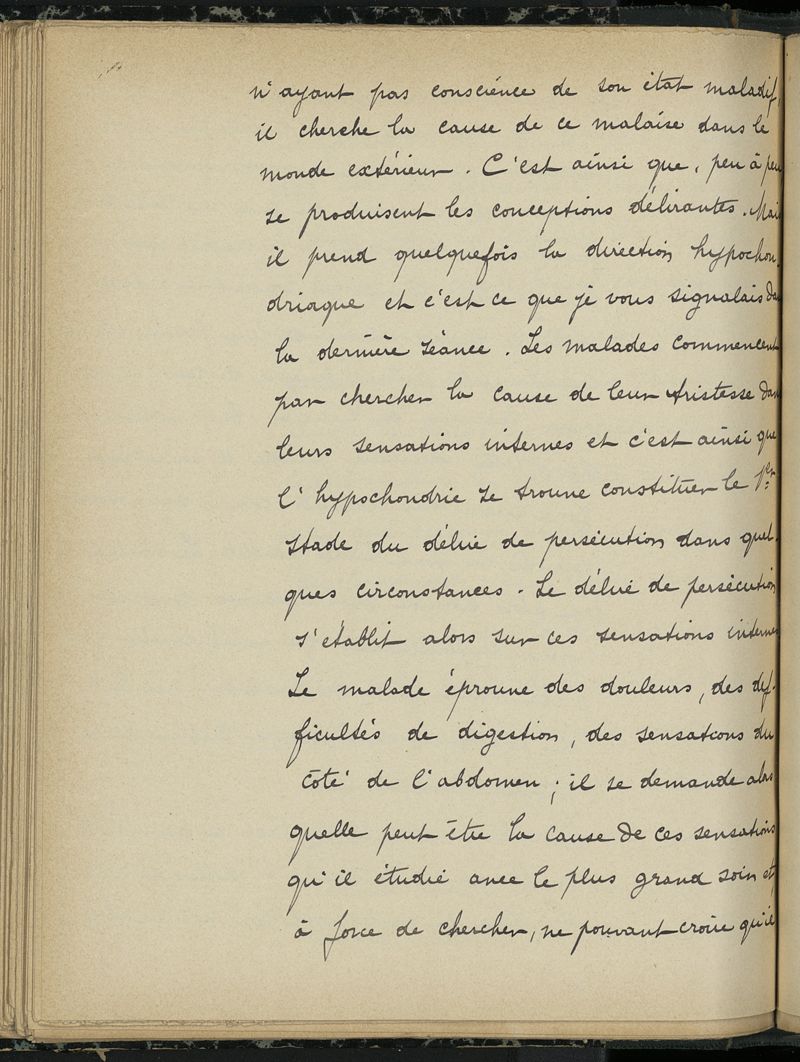 n'ayant pas conscience de son état maladif,
il cherche la cause de ce malaise dans le
monde extérieur. C'est ainsi que, peu à peu
se produisent les conceptions délirantes. Mai
il prend quelquefois la direction hypochon-
driaque et c'est ce que je vous signalais da
la dernière séance. Les malades commencent
par chercher la cause de leur tristesse dan
leurs sensations internes et c'est ainsi que
l'hypochondrie se trouve constituer le 1er
stade du délire de persécution dans quel-
ques circonstances. Le délire de persécution
s'établit alors sur ces sensations internes
Le malade éprouve des douleurs, des dif-
ficultés de digestion, des sensations du
côté de l'abdomen ; il se demande alors
quelle peut être la cause de ces sensations
qu'il étudie avec le plus grand soin et,
à force de chercher, ne pouvant croire qu'il